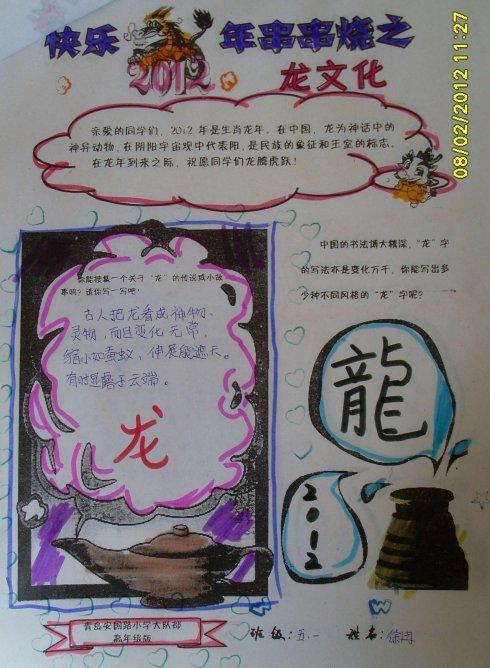 快乐 年串串烧之
2012
龙文化
亲爱的同学们，2012 年是生肖龙年。在中国，龙为神话中的
神异动物，在阴阳宇宙观中代表阳，是民族的象征和王室的标志。
在龙年到来之际，祝愿同学们龙腾虎跃！
你能搜集一个关于“龙”的传说或小故
事吗？请你写一写吧！
古人把龙看成神物、
灵物，而且变化无常，
缩小如蚕蚁，伸展能遮天。
有时显露于云端。
龙
中国的书法博大精深，“龙”字
的写法亦是变化万千，你能写出多
少种不同风格的“龙”字呢？
龍
2012
青岛安国路小学大队部
高年级版
班级：五.一 姓名：徐
08/02/2012 11:27